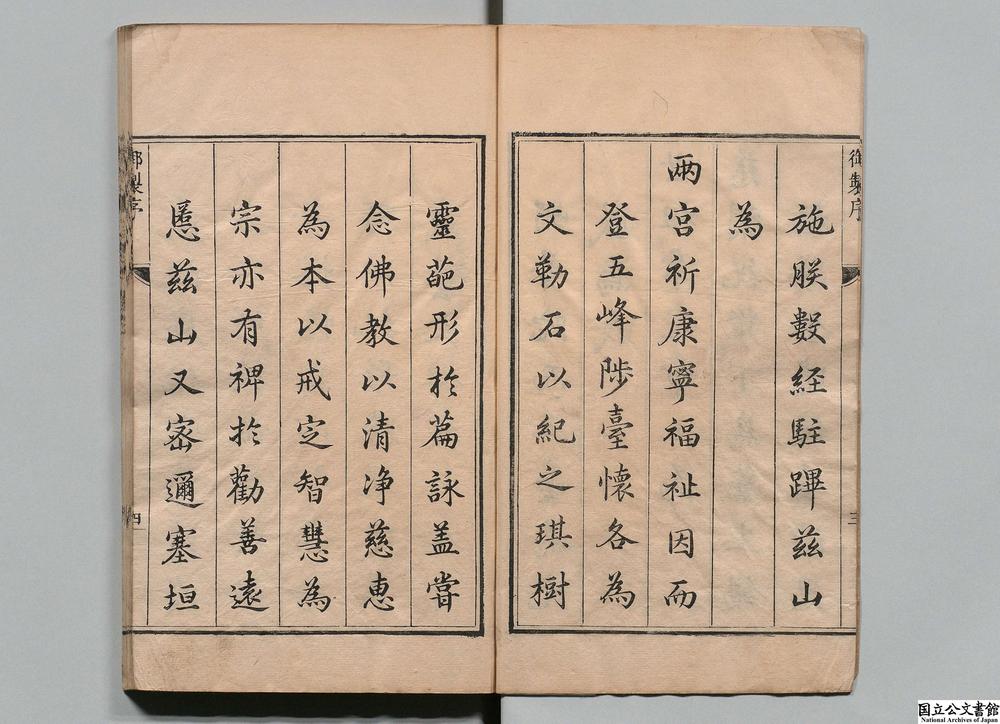 御製序
三
施朕數經駐蹕茲山
為
兩宮祈康寧福祉因而
登五峰陟臺懷各為
文勒石以紀之琪樹
靈葩形於篇詠蓋嘗
念佛教以清淨慈惠
為本以戒定智慧為
宗亦有裨於勸善遠
慝茲山又密邇塞垣
御製序
四
国立公文書館
National Archives of Japan